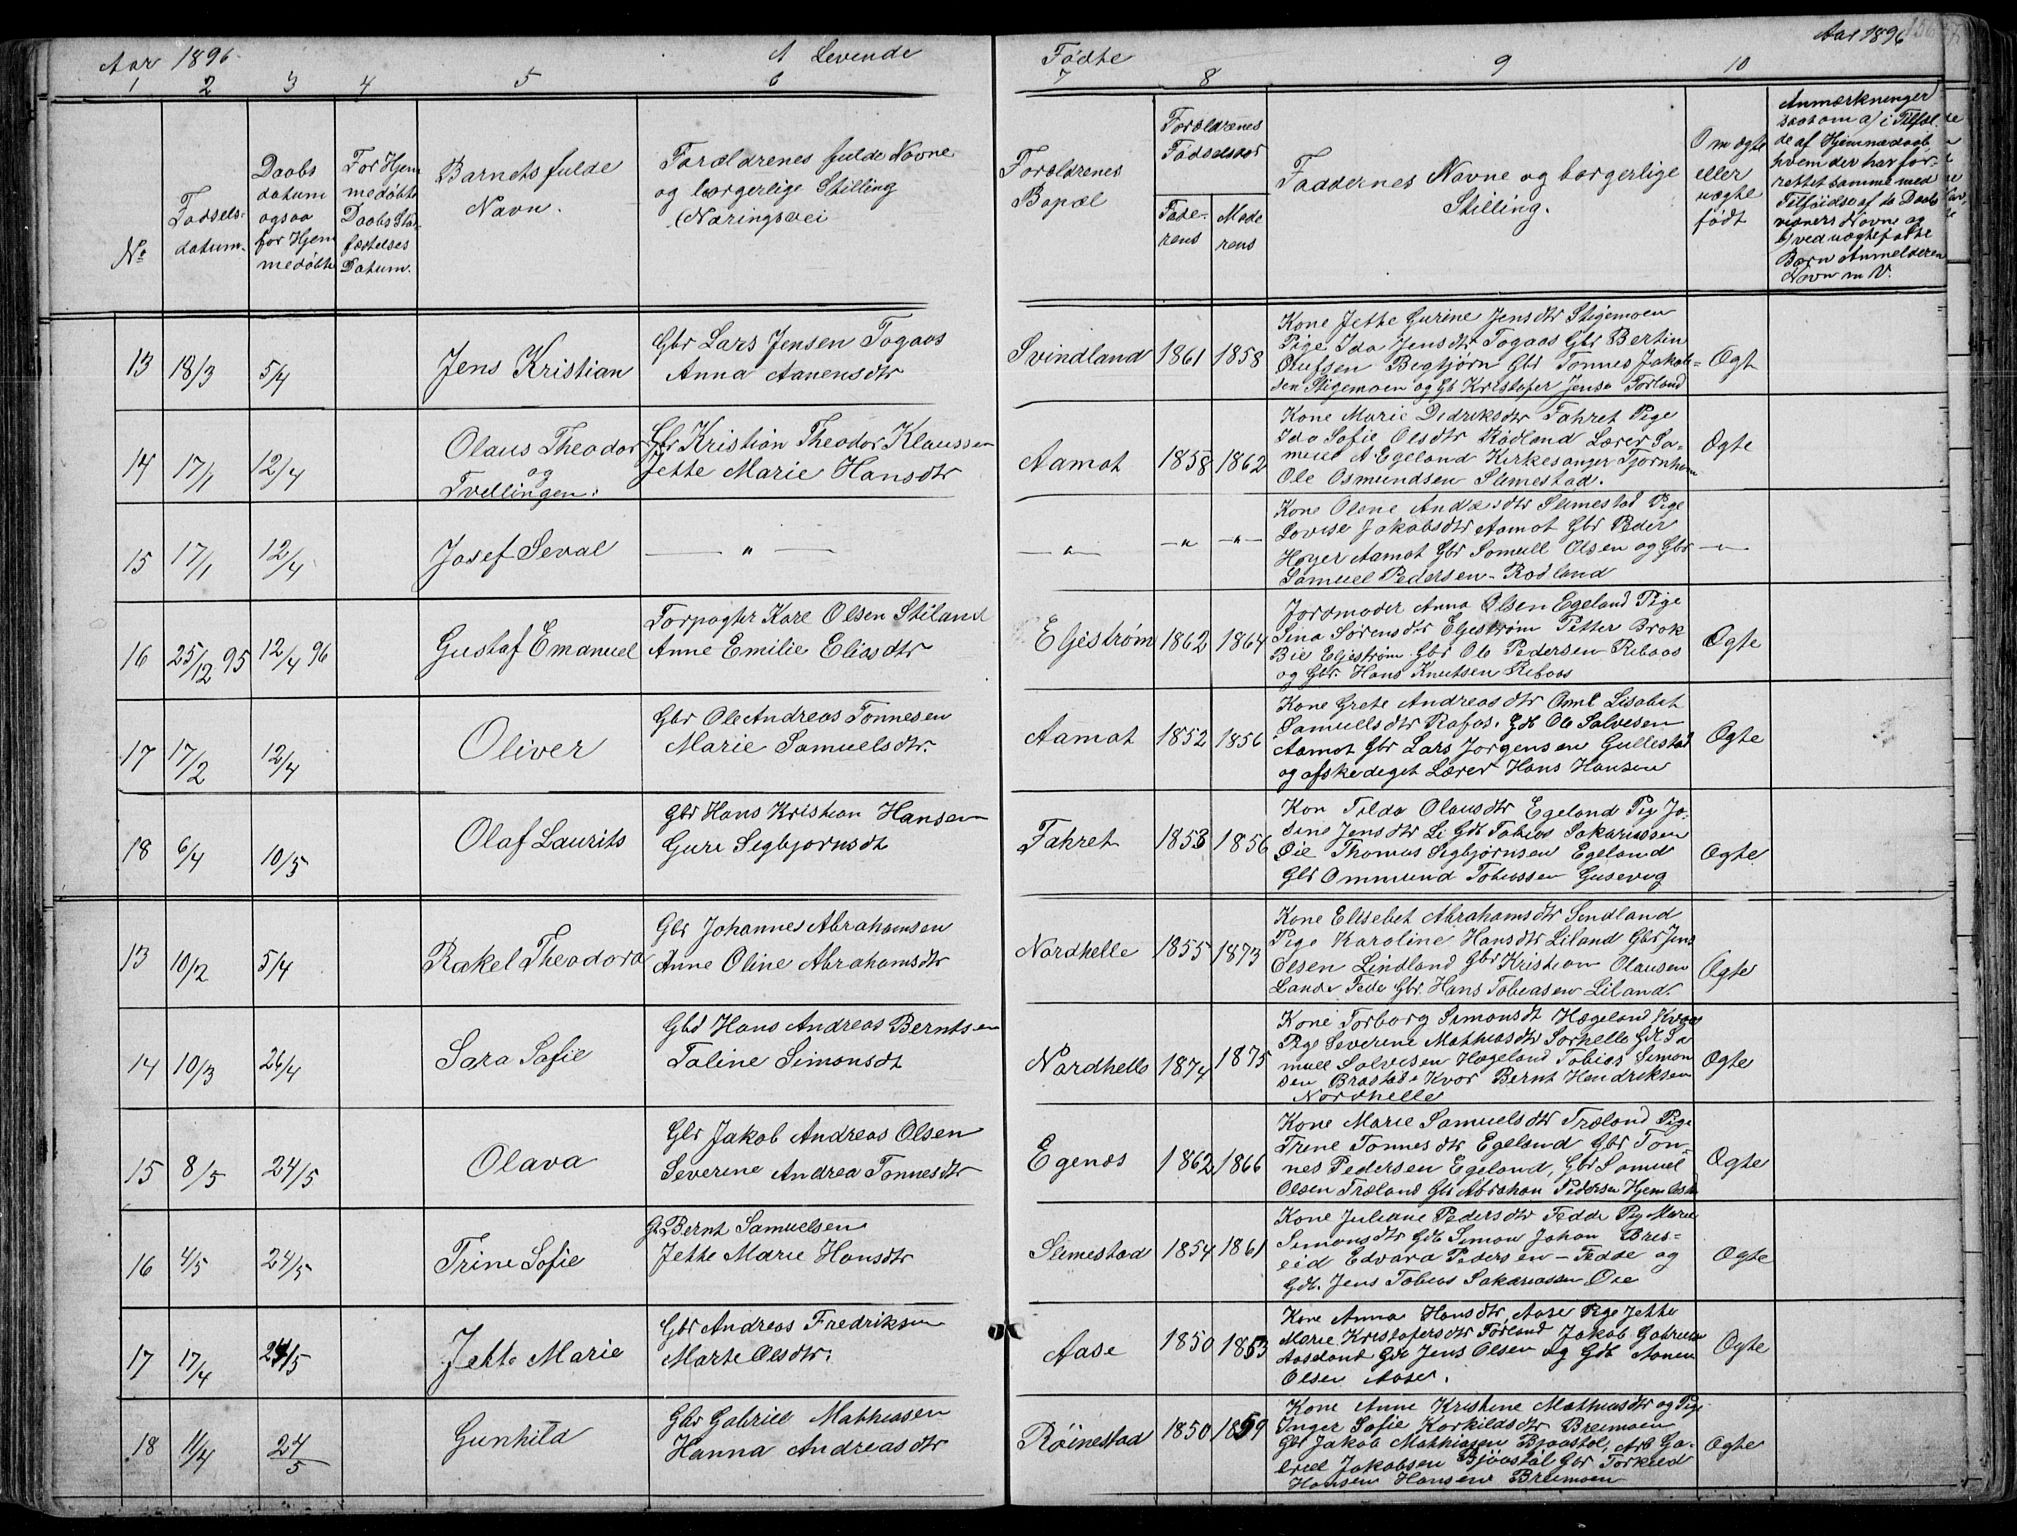 Aar 1896
A Levende
Fødte
Aar 1896
1 2 3 4 5 6 7 8 9 10
No
Fødsels-
datum.
Daabs
datum
ogsaa
for Hjem
medøbte
For Hjem
medøbte
Daabs Stad
fæstelses
Datum.
Barnets fulde
Navn.
Forældrenes fulde Navne
og borgerlige Stilling
(Næringsvei
Forældrenes
Bopæl
Forældrenes
Fødselsaar
Fade-
rens
Mode
rens
Faddernes Navne og borgerlige
Stilling.
Om ægte
eller
uægte
født
Anmærkninger
saasom a) i Tilfæl
de af Hjemmedaab,
hvem der har for-
rettet samme med
Tilføidse af to Daab
vidners Navne og
b) ved uægtefødte
Børn Anmelderen
Navn m V.
13 18/3 5/4 Jens Kristian
Gbr Lars Jensen Fogaas
Anna Aanensdtr
Svindland 1861 1858
Kone Jette Gurine Jensdtr Stigemoen
Pige Ida Jensdtr Fogaas Gbr Bertin
Olufsen Begbjørn Gbr Tønnes Jakob-
sen Stigemoen og Gb Kristofer Jense Forland
Ægt
14 17/1 12/4 Olaus Theodor
og
Tvellingen:
Gbr Kristian Theodor Klaussen
Jette Marie Hansdtr
Aamot 1858 1862
Kone Marie Didriksdtr Fahret Pige
Ida Sofie Olsdtr Rødland Lærer Sa-
muel A. Egeland Kirkesanger Tjørnhom
Ole Osmundsen Slimestad.
Ægte
15 17/1 12/4 Josef Seval
— " —
— " — — " — — " —
Kone Olene Andr.sdtr Slimestad Pige
Lovise Jakobsdtr Aamot Gbr Peder
Høyer Aamot Gbr Samuel Olsen og Gbr
Samuel Pedersen Rødland
— " —
16 25/12 95 12/4 96 Gustaf Emanuel
Forpagter Karl Olsen Stiland
Anne Emilie Eliasdtr
Eljestrøm 1862 1864
Jordmoder Anna Olsen Egeland Pige
Sina Sørensdtr Eljestrøm Petter Brok
Bie Eljestrøm Gbr Ole Pedersen Rebaas
og Gbr. Hans Knutsen Rebaas
Ægte
17 17/2 12/4 Oliver
Gbr Ole Andreas Tønnesen
Marie Samuelsdtr.
Aamot 1852 1856
Kone Grete Andreasdtr Omt Lisabet
Samuelsdtr Rafos. Gb Ole Salvesen
Aamot Gbr Lars Jørgensen Gullestad
og afskediget Lærer Hans Hansen
Ægte
18 6/4 10/5 Olaf Laurits
Gbr Hans Kristian Hansen
Guri Sigbjørnsdt
Fahret 1853 1856
Kon Tilda Olausdtr Egeland Pig Jo-
sine Jensdtr Li Gb Tobias Sakariassen
Øie Thomas Sigbjørnsen Egeland
Gbr Ommund Tobiassen Gusevig
Ægte
13 10/2 5/4 Rakel Theodora
Gbr Johannes Abrahamsen
Anne Oline Abrahamsdtr
Nordhelle 1855 1873
Kone Elisebet Abrahamsdtr Sindland
Pige Karoline Hansdtr Liland Gbr Jens
Olsen Lindland Gbr Kristian Olausen
Lande Fede Gbr. Hans Tobiasen Liland.
Ægte
14 10/3 26/4 Sara Sofie
Gbd Hans Andreas Berntsen
Taline Simonsdt
Nordhelle 1874 1875
Kone Torborg Simonsdt Hægeland Kvaas
Pige Severine Mathiasdtr Sørhelle Gb Sa
muel Salvesen Hægeland Tobias Simon
sen Brastad Kvas Bernt Hendriksen
Nordhelle
Ægte
15 8/5 24/5 Olava
Gbr Jakob Andreas Olsen
Severine Andrea Tønnesdtr
Egenæs 1862 1866
Kone Marie Samuelsdtr Træland Pige
Trine Tønnesdtr Egeland Gbr Tøn-
nes Pedersen Egeland, Gbr Samuel
Olsen Træland Gbr Abraham Pedersen
Ægte
16 4/5 24/5 Trine Sofie
Gb Bernt Samuelsen
Jette Marie Hansdtr
Slimestad 1854 1861
Kone Juliane Pedersdtr Fedde Pig Marie
Simonsdtr Gb Simon Johan Bres-
eid Edvard Pedersen Fedde og
Gdb. Jens Tobias Sakariassen Øie
Ægte
17 17/4 24/5 Jette Marie
Gbr Andreas Fredriksen
Marte Olsdtr.
Aase 1850 1853
Kone Anna Hansdtr Aase Pige Jette
Marie Kristofersdtr Førland Jakob Gabriels
Aaseland Gdb Jens Olsen og Gdb Aanen
Olsen Aase.
Ægte
18 11/4 24/5 Gunhild
Gbr Gabriel Mathiasen
Hanna Andreasdtr
Røinestad 1850 1859
Kone Anne Kristine Mathiasdtr og Pige
Inger Sofie Korkildsdtr Breimoen
Gbr Jakob Mathiasen Bjaastøl, Arb Ga-
briel Jakobsen Bjaastøl Gbr Torkild
Hansen Hansens Breimoen
Ægte